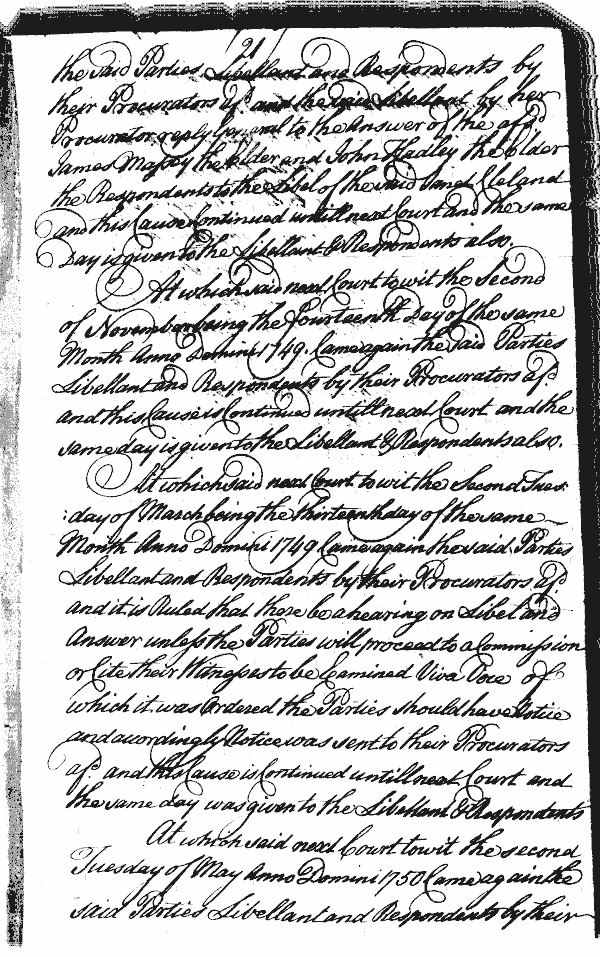 21
the Said Parties Libellant and Respondents by
their Procurators afd. and the said Libellant by her
Procurator reply General to the Answer of the afd.
James Massey the Elder and John Hedley the Elder
the Respondents to the Libel of the said Janet Cleland
and this Cause Continued untill next Court and the same
Day is given to the Libellant & Respondents also.
At which said next Court to wit the Second
of November being the fourteenth Day of the same
Month Anno Domini 1749. Came again the Said Parties
Libellant and Respondents by their Procurators afd.
and this Cause is Continued untill next Court and the
same day is given to the Libellant & Respondents also.
At which said next Court to wit the Second Tues
:day of March being the thirteenth day of the same
Month Anno Domini 1749 Came again the said Parties
Libellant and Respondents by their Procurators afd.
and it is Ruled that there be a hearing on Libel and
Answer unless the Parties will proceed to a Commission
or Cite their Witnesses to be Examined Viva Voce of
which it was Ordered the Parties should have Notice
and accordingly Notice was sent to their Procurators
afd. and this Cause is Continued untill next Court and
the same day was given to the Libellant & Respondents
At which said next Court to wit the second
Tuesday of May Anno Domini 1750 Came again the
said Parties Libellant and Respondents by their